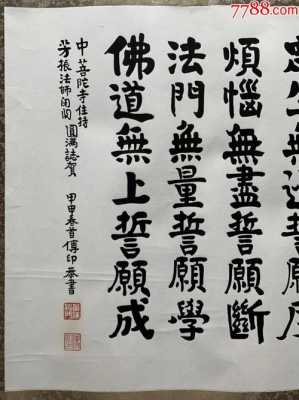 7788.com
煩惱無盡誓願斷
法門無量誓願學
佛道無上誓願成
中菩陀寺住持
芳振法師閉關圓滿誌賀
甲申春 傳印 書